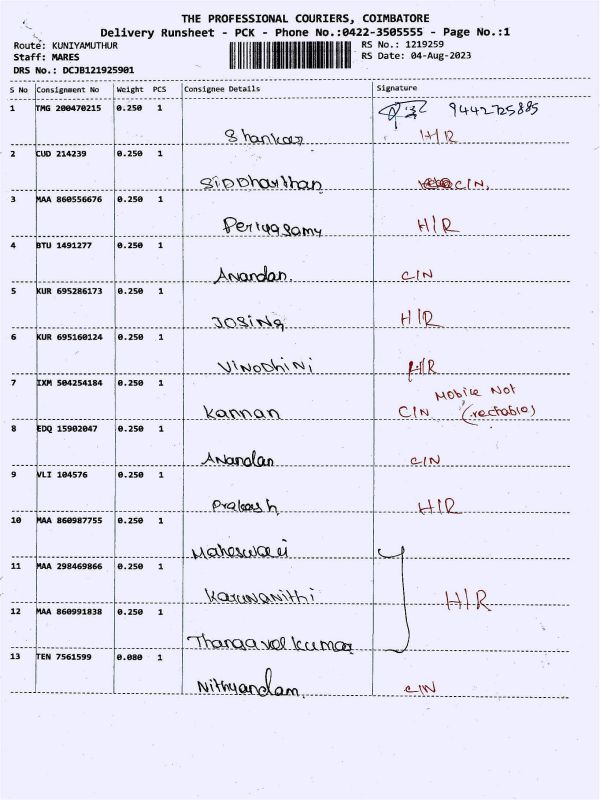 THE PROFESSIONAL COURIERS, COIMBATORE
Delivery Runsheet - PCK - Phone No.:0422-3505555 - Page No.:1
Route: KUNIYAMUTHUR RS No.: 1219259
Staff: MARES RS Date: 04-Aug-2023
DRS No.: DCJB121925901
S No Consignment No Weight PCS Consignee Details Signature
1 TMG 200470215 0.250 1 9442725885
Shankar H/R
2 CUD 214239 0.250 1
SIDDharthan C/N.
3 MAA 860556676 0.250 1
Periyasamy H/R
4 BTU 1491277 0.250 1
Anandan. C/N
5 KUR 695286173 0.250 1
JOSING H/R
6 KUR 695160124 0.250 1
VINODHINI H/R
7 IXM 504254184 0.250 1 Mobile Not
Kannan C/N (rechable)
8 EDQ 15902047 0.250 1
Anandan C/N
9 VLI 104576 0.250 1
Prakash H/R
10 MAA 860987755 0.250 1
Maheswari
11 MAA 298469866 0.250 1
Karunanithi H/R
12 MAA 860991838 0.250 1
Thangavelkumar
13 TEN 7561599 0.080 1
Nithyandam. C/N